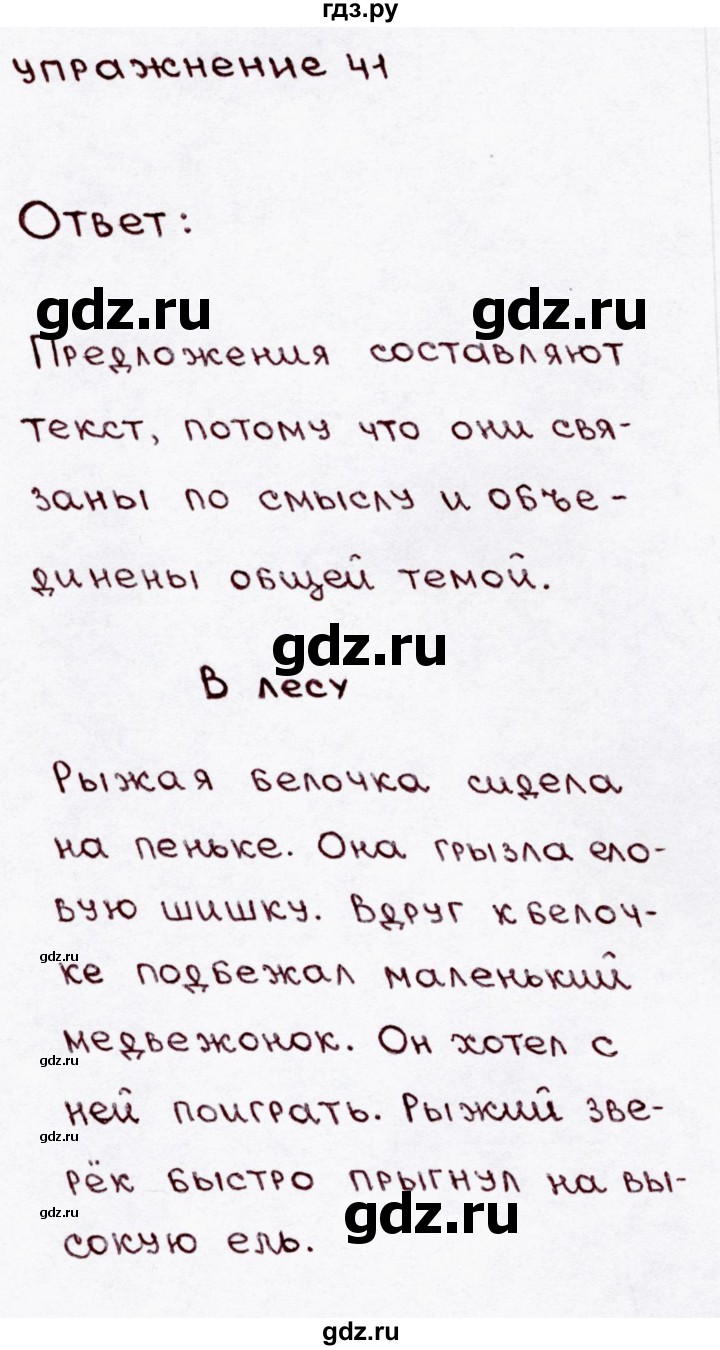 гдз.ру
упражнение 41
Ответ:
gdz.ru gdz.ru
Предложения составляют
текст, потому что они свя-
заны по смыслу и объе-
динены общей темой.
gdz.ru
В лесу
Рыжая белочка сидела
на пеньке. Она грызла ело-
вую шишку. Вдруг к белоч-
gdz.ru
ке подбежал маленький
медвежонок. Он хотел с
gdz.ru
ней поиграть. Рыжий зве-
gdz.ru
рёк быстро прыгнул на вы-
gdz.ru gdz.ru
сокую ель.
gdz.ru